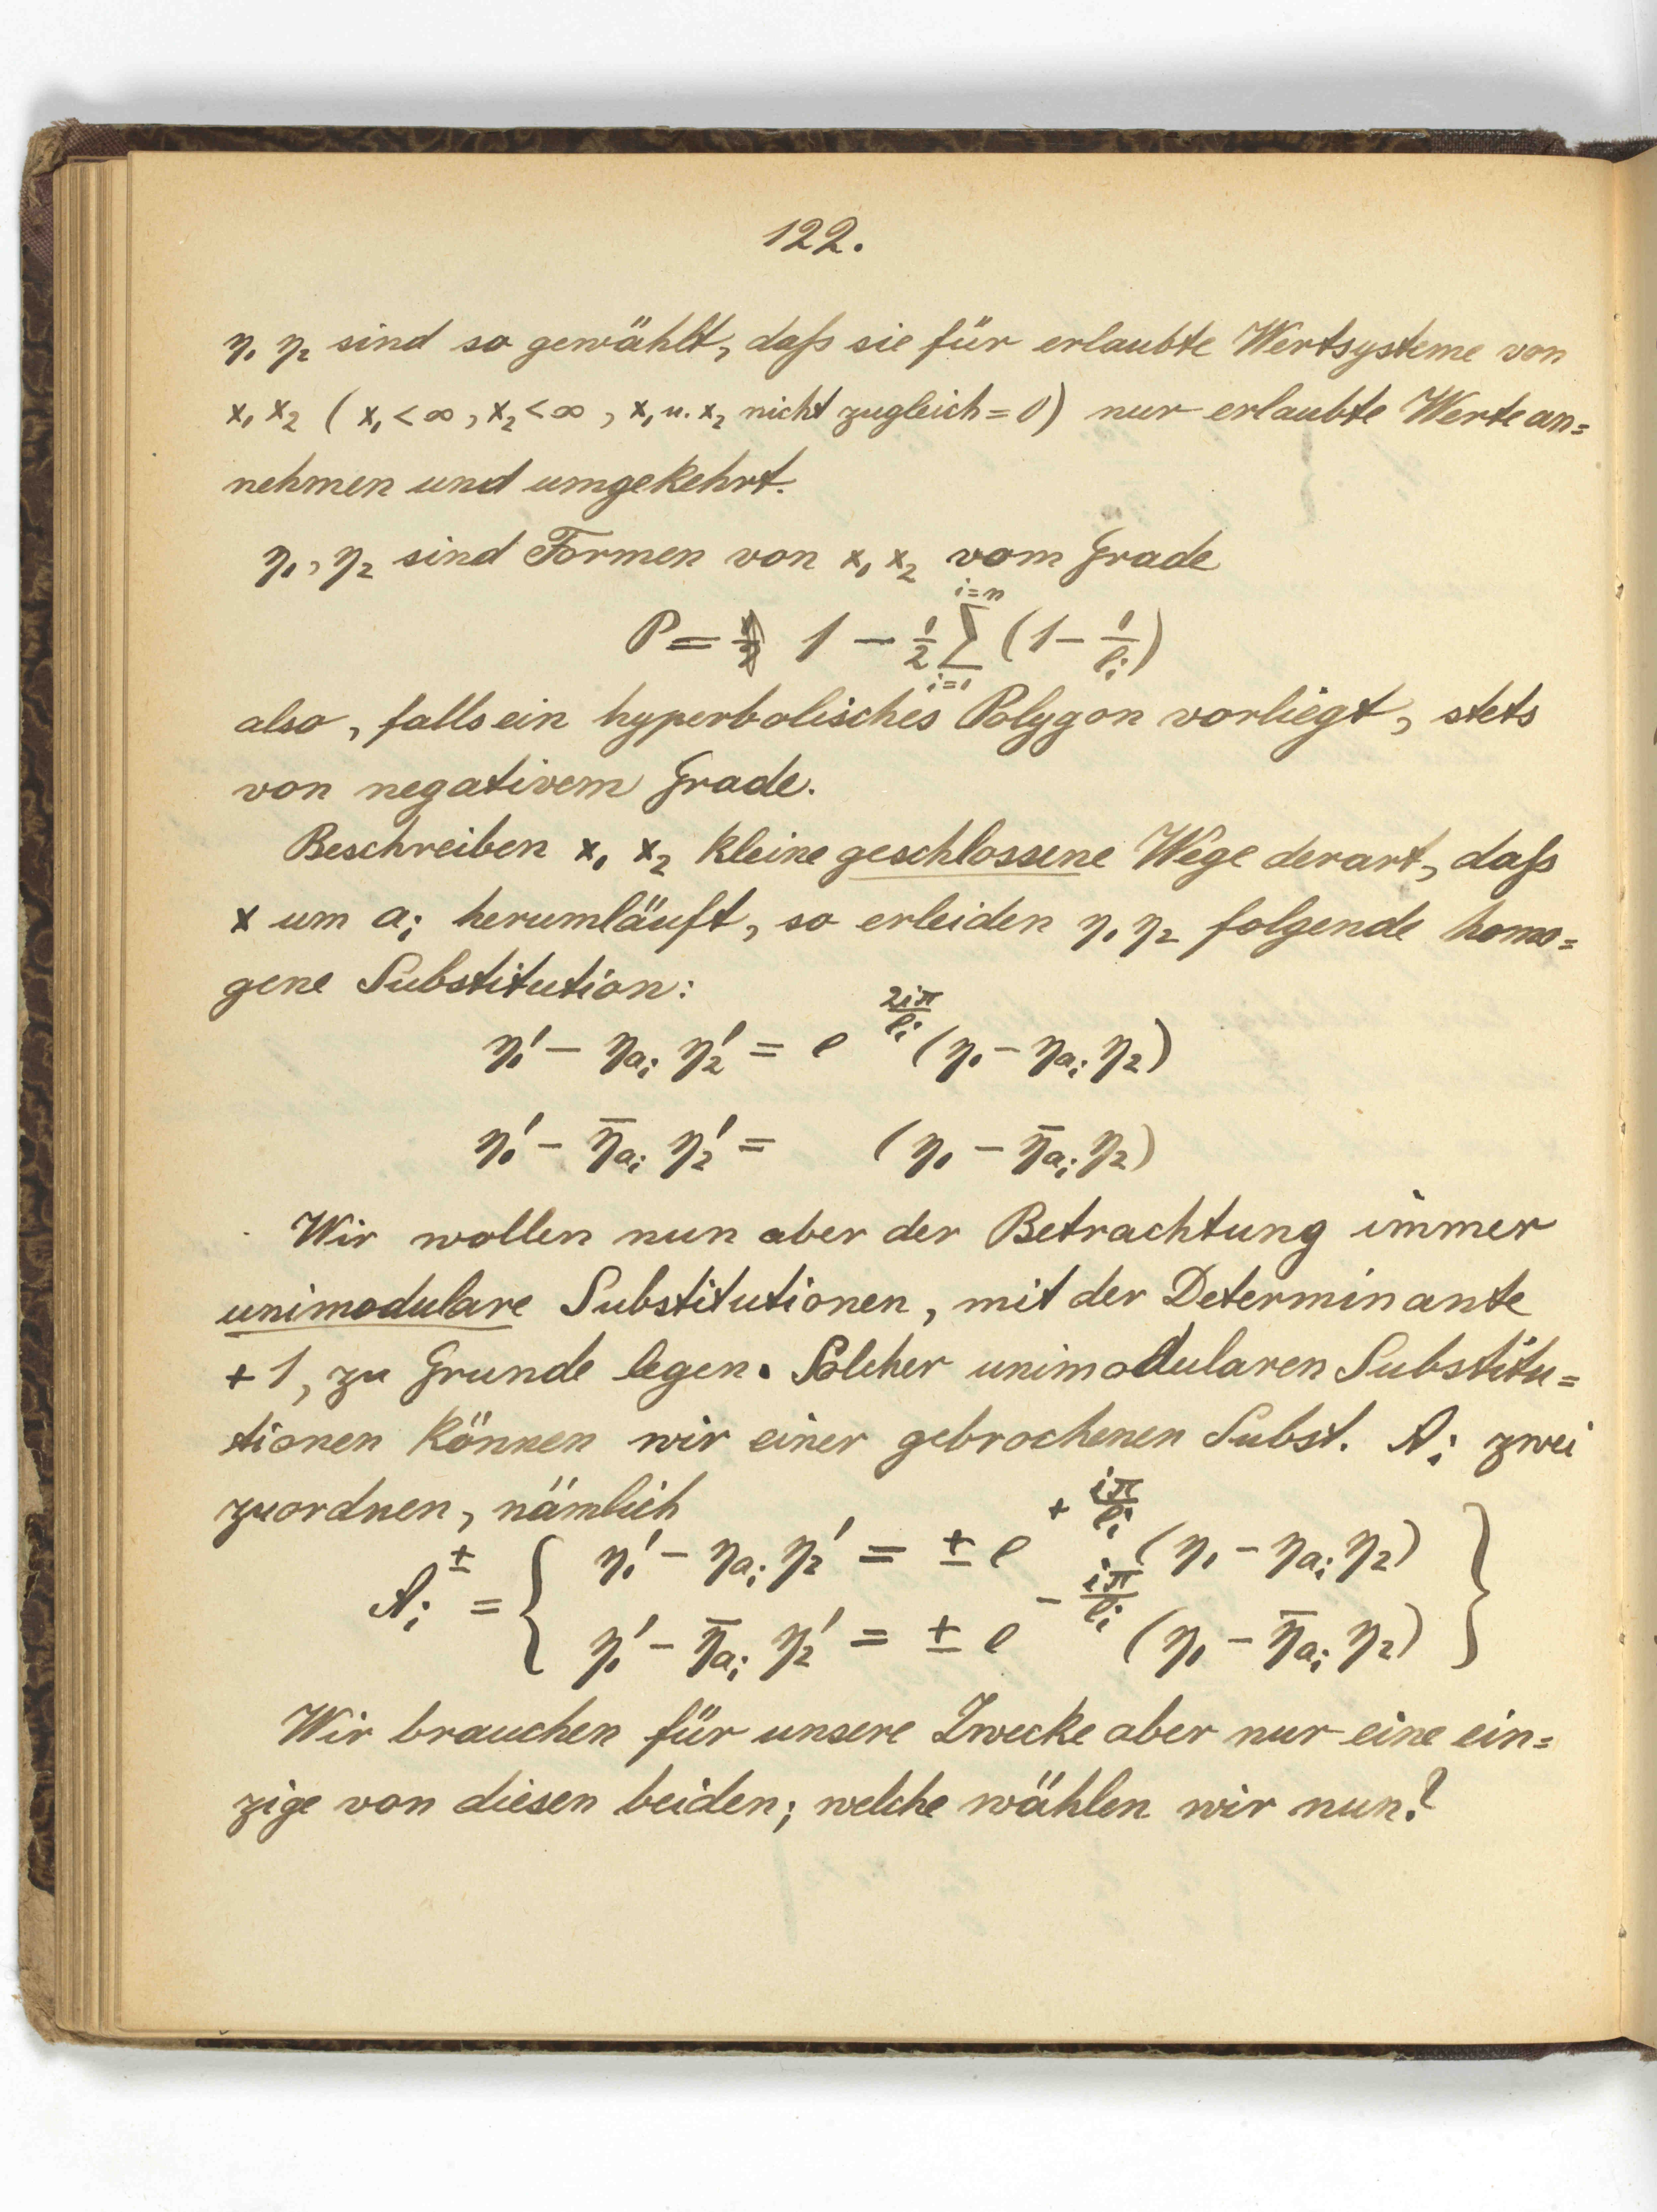 122.
η₁ η₂ sind so gewählt, daſs sie für erlaubte Wertsysteme von
x₁ x₂ ( x₁ < ∞ , x₂ < ∞ , x₁ u. x₂ nicht zugleich = 0 ) nur erlaubte Werte an=
nehmen und umgekehrt.
η₁, η₂ sind Formen von x₁ x₂ vom Grade
P = 1 − 1/2 ∑_{i=1}^{i=n} (1 − 1/ℓᵢ)
also, falls ein hyperbolisches Polygon vorliegt, stets
von negativem Grade.
Beschreiben x₁ x₂ kleine geschlossene Wege derart, daſs
x um aᵢ herumläuft, so erleiden η₁ η₂ folgende homo=
gene Substitution:
η₁′ − η_{aᵢ} η₂′ = e^{2iπ/ℓᵢ} (η₁ − η_{aᵢ} η₂)
η₁′ − η̄_{aᵢ} η₂′ = (η₁ − η̄_{aᵢ} η₂)
Wir wollen nun aber der Betrachtung immer
unimodulare Substitutionen, mit der Determinante
+ 1, zu Grunde legen. Solcher unimodularen Substitu=
tionen können wir einer gebrochenen Subst. Aᵢ zwei
zuordnen, nämlich
Aᵢ^± = { η₁′ − η_{aᵢ} η₂′ = ± e^{+ iπ/ℓᵢ} (η₁ − η_{aᵢ} η₂)
η₁′ − η̄_{aᵢ} η₂′ = ± e^{− iπ/ℓᵢ} (η₁ − η̄_{aᵢ} η₂) }
Wir brauchen für unsere Zwecke aber nur eine ein=
zige von diesen beiden; welche wählen wir nun?